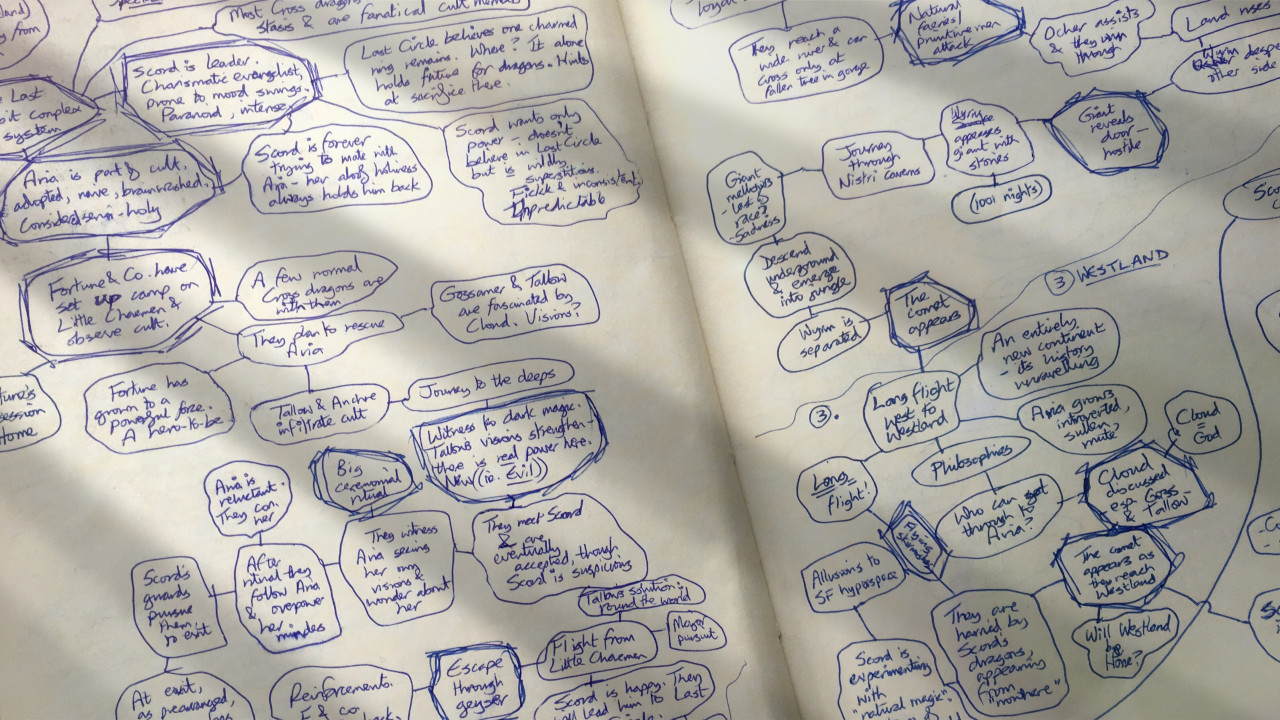 Most Cross dragons
stasis & are fanatical cult members
Scord is leader.
Charismatic evangelist,
prone to mood swings.
Paranoid, intense
Last Circle believes one charmed
ring remains. Where? It alone
holds future for dragons. Hints
at sacrifice there.
Last
complex
system
Aria is part of cult,
adopted, naive, brainwashed.
Considered semi-holy
Scord is forever
trying to mate with
Aria - her aloof holiness
always holds him back
Scord wants only
power - doesn't
believe in Last Circle
but is mildly
superstitious.
Fickle & inconsistent,
Unpredictable
Fortune & Co. have
set up camp on
Little Charmen &
observe cult.
A few normal
Cross dragons are
with them
They plan to rescue
Aria
Gossamer & Tallow
are fascinated by
Cloud. Visions?
Home
Fortune has
grown to a
powerful force.
A hero-to-be.
Tallow & Anchre
infiltrate cult
Journey to the deeps
Witness to dark magic.
Tallow's visions strengthen -
there is real power here.
New ((ie. Evil))
Big
ceremonial
ritual
Aria is
reluctant.
They con
her
They witness
Aria seeing
her own
visions &
wonder about
her
They meet Scord
& are
eventually
accepted, though
Scord is suspicious
After
ritual they
follow Aria
& overpower
her minders
Scord's
guards
pursue
them
to exit
At exit,
as prearranged,
Reinforcements.
F & co.
Escape
through
geyser
Flight from
Little Charmen
Tallow's solution:
round the world
Major
pursuit
Scord is happy. Then
lead him to Last
They reach a
wide river & can
cross only at
fallen tree in gorge
Natural
faeries/
primitive men
attack
Ocher assists
& they win
through
Land rises
Wyrm
other side
Giant
reveals
door -
hostile
Wyrm
appeases
giant with
stories
(1001 nights)
Journey
through
Nistri caverns
Giant
mellows
- Last of
race?
- Sadness
Descend
underground
& emerge
into jungle
Wyrm is
separated
The
comet
appears
③ WESTLAND
③.
Long flight
West to
Westland
An entirely
new continent
- its history
unravelling
Aria grows
introverted,
sullen,
mute
Cloud
=
God
Philosophies
Long
flight!
Who can get
through to
Aria?
Cloud
discussed
esp. Goss
& Tallow
Flying
Allusions to
SF hyperspace
The comet
appears as
they reach
Westland
Will Westland
be
Home?
They are
harried by
Scord's
dragons,
appearing
from
"nowhere"
Scord is
experimenting
with
"natural magic"